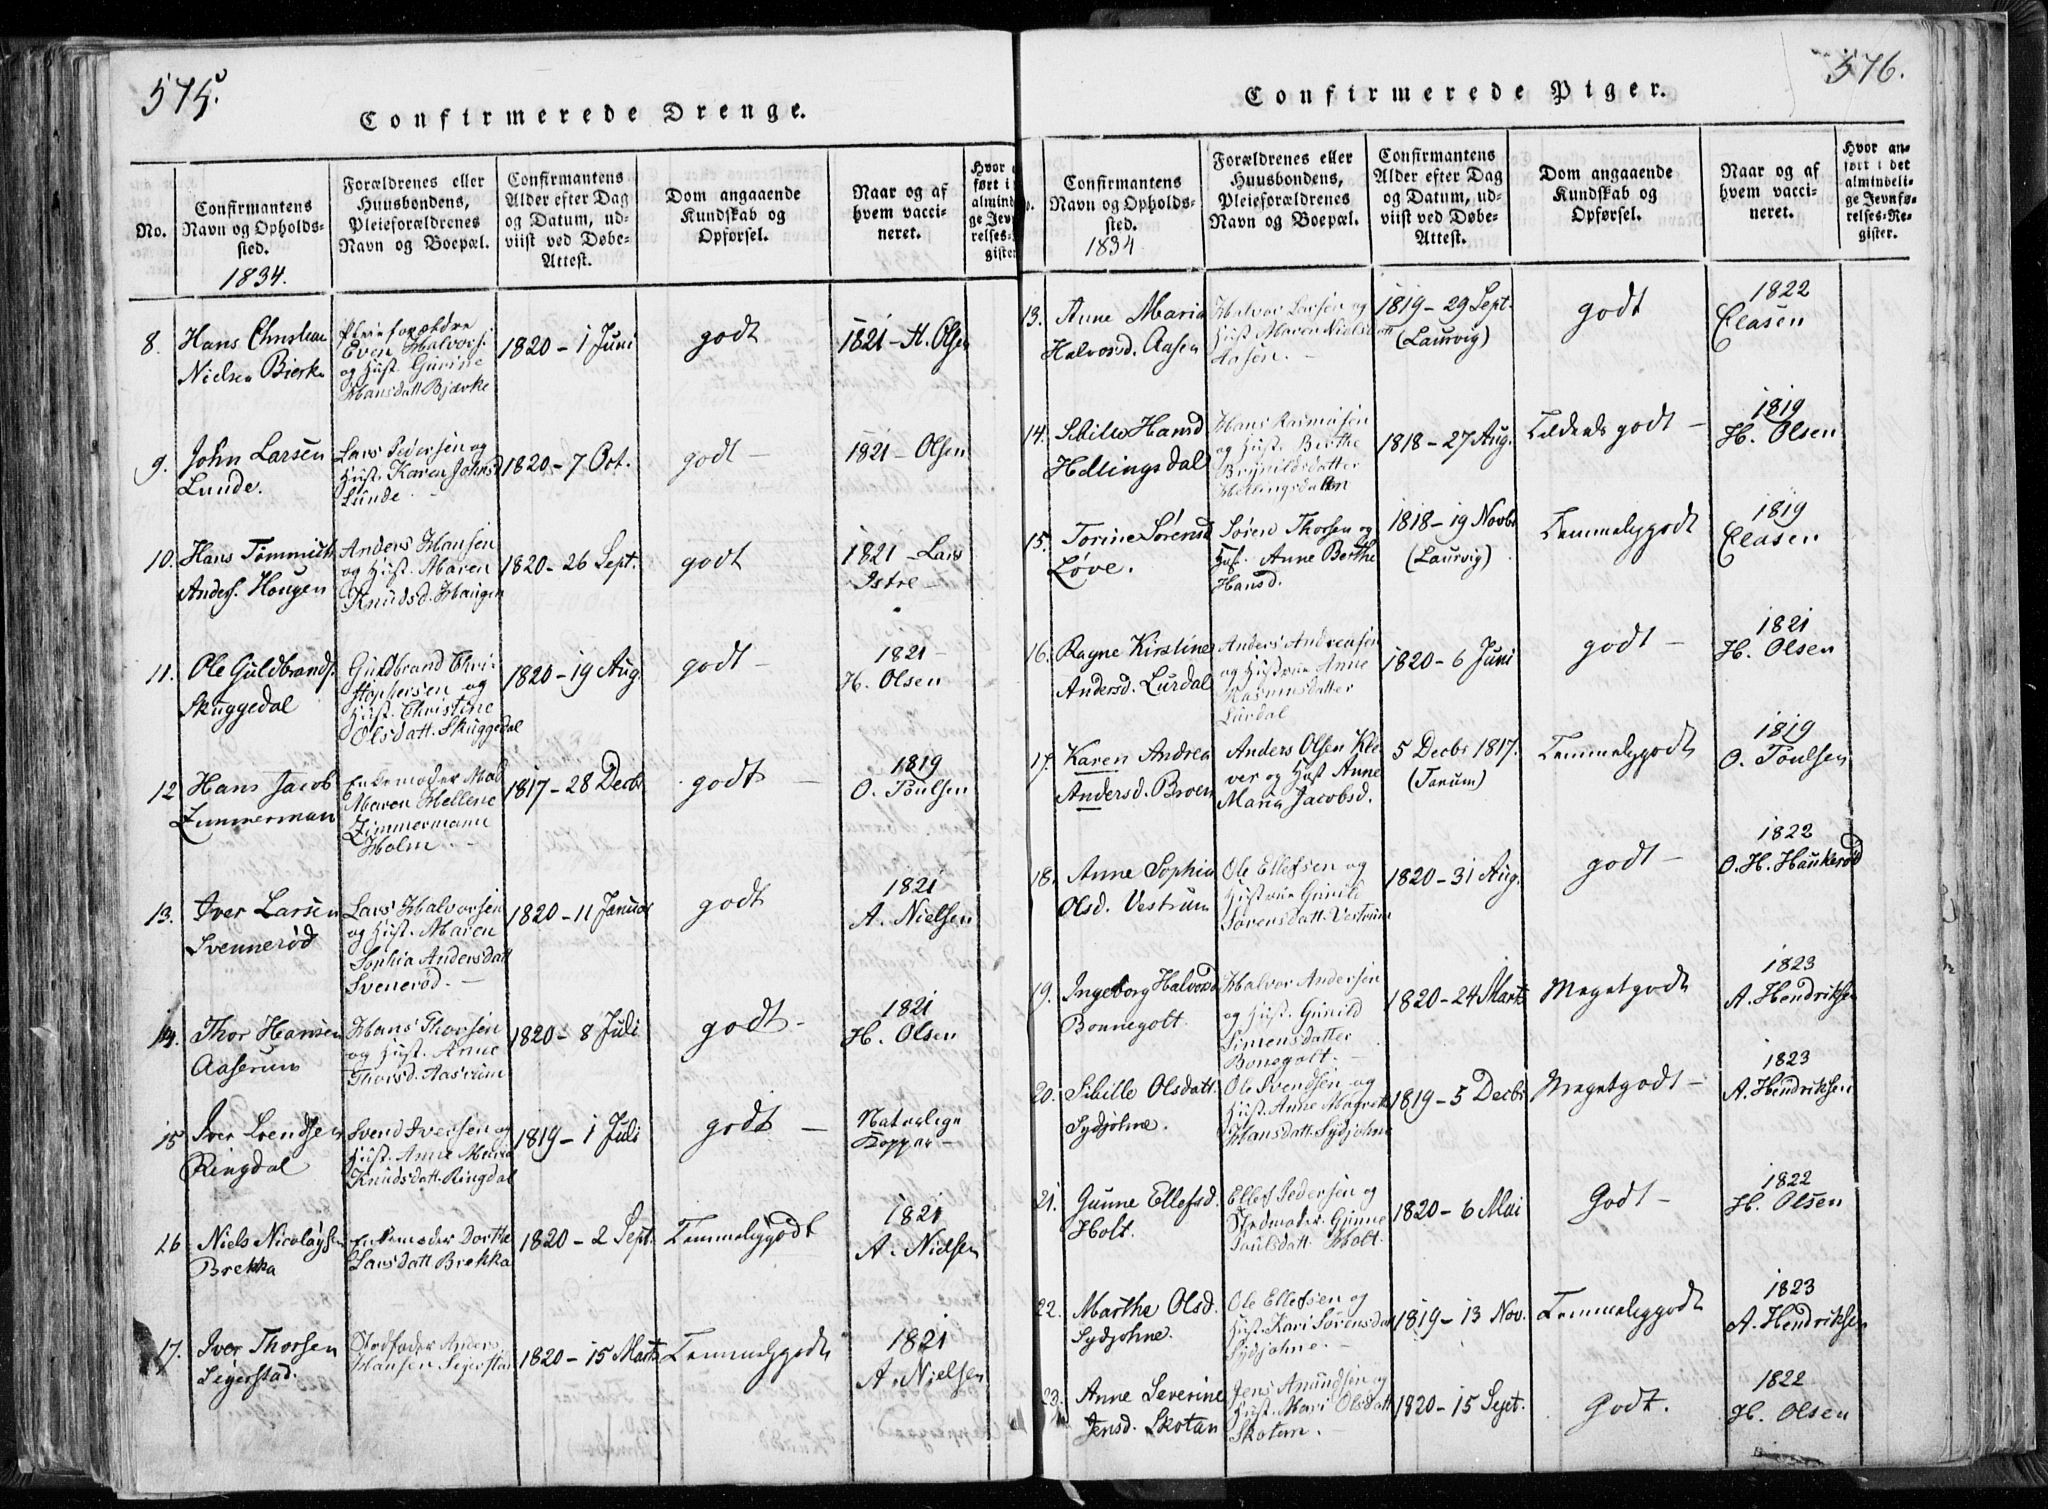 575.
Confirmerede Drenge.
No.
Confirmantens
Navn og Opholds-
sted.
1834.
Forældrenes eller
Huusbondens,
Pleieforældrenes
Navn og Boepæl.
Confirmantens
Alder efter Dag
og Datum, ud-
viist ved Døbe-
Attest.
Dom angaaende
Kundskab og
Opførsel.
Naar og af
hvem vacci-
neret.
8.
Hans Christian
Nielsen Bierke
Pleieforældre
Even Halvors.
og Hust. Gurine
Hansdatt Bjærke
1820 - 1 Juni
godt
1821 - H. Olsen
9.
John Larsen
Lunde.
Lars Pedersen og
Hust. Karen Johnsd
Lunde
1820 - 7 Oct.
godt -
1821 - Olsen
10.
Hans
Anders. Hougen
Anders Hansen
og Hust. Maren
Knudsd. Haugen
1820 - 26 Sept.
godt
1821 - Lars
Istre -
11.
Ole Guldbrands.
Skuggedal
Guldbrand Chri-
stophersen og
Hust. Christine
Olsdatt. Skuggedal
1820 - 19 Aug
godt -
1821 -
H. Olsen
12
Hans Jacob
Zimmerman
Enkemoder Mad
Maren Hellene
Zimmermann
Holm. -
1817 - 28 Decbr
godt -
1819
O. Poulsen
13.
Iver Larsen
Svennerød
Lars Halvorsen
og Hust. Maren
Sophia Andersdatt
Svenerød. -
1820 - 11 Januar
godt
1821
A. Nielsen
14.
Thor Hansen
Aaserum
Hans Thorsen
og Hust. Anne
Thorsd. Aasrum
1820 - 8 Juli
godt -
1821
H. Olsen
15
Iver Svendsen
Ringdal
Svend Iversen og
Hust. Anne Maria
Knudsdatt. Ringdal
1819 - 1 Juli
godt -
Naturlige
Kopper -
16
Niels Nicolaysen
Brekka
Enkemoder Dorthe
Larsdatt Brekka
1820 - 2 Sept.
Temmeliggodt
1821
A. Nielsen
17.
Iver Thorsen
Sigerstad.
Stedfader Anders
Hansen Sejerstad
1820 - 15 Marts
Temmeliggodt
1821
A. Nielsen
576.
Confirmerede Piger.
Confirmantens
Navn og Opholds-
sted.
1834
Forældrenes eller
Huusbondens,
Pleieforældrenes
Navn og Boepæl.
Confirmantens
Alder efter Dag
og Datum, ud-
viist ved Døbe-
Attest.
Dom angaaende
Kundskab og
Opførsel.
Naar og af
hvem vacci-
neret.
Hvor an-
ført i det
almindeli-
ge Jevnfø-
relses-Re-
gister.
13.
Anne Maria
Halvorsd. Aasen
Halvor Larsen og
Hust Maren Nielsdatt
Aasen. -
1819 - 29 Sept.
(Laurvig)
godt
1822
Clasen
14.
Sibille Hansd
Hellingsdal
Hans Rasmusen
og Hust. Berthe
Brynildsdatter
1818 - 27 Aug.
godt -
1819
H. Olsen
15.
Torine Sørensd
Løve.
Søren Thorsen og
Hust. Anne Berthe
Hansd.
1818 - 19 Novbr
(Laurvig)
Temmeliggodt
1819
Clasen
16.
Ragne Kirstine
Andersd. Lurdal
Anders Andreasen
og Hustrue Anne
Rasmusdatter
Lurdal
1820 - 6 Juni
godt -
1821
H. Olsen
17.
Karen Andrea
Andersd. Broen
Anders Olsen Klø-
ver og Hust Anne
Maria Jacobsd.
5 Decbr 1817.
(Tanum)
Temmeliggodt
1819
O. Poulsen
18.
Anne Sophia
Olsd. Vestrum
Ole Ellefsen og
Hustrue Gunild
Sørensdatt. Vestrum
1820 - 31 Aug.
godt -
1822
O. H. Haukerød
19.
Ingeborg Halvorsd
Bonnegolt.
Halvor Andersen
og Hust. Gunild
Simensdatter
Bonegolt. -
1820 - 24 Marts
Megetgodt
1823
A. Hendriksen
20.
Sibille Olsdatt.
Sydjohne.
Ole Svendsen og
Hust. Anne Magrete
Hansdatt. Sydjohne
1819 - 5 Decbr
Megetgodt -
1823
A. Hendriksen
21.
Gunne Ellefsd.
Holt.
Ellef Pedersen og
Stedmoder Gunne
Poulsdatt. Holt.
1820 - 6 Mai
Godt -
1822
H. Olsen
22.
Marthe Olsd.
Sydjohne.
Ole Ellefsen og
Hust. Kari Sørensdatt
Sydjohne. -
1819 - 13 Nov.
Temmeliggodt
1823
A. Hendriksen
23.
Anne Severine
Jensd. Skotan
Jens Amundsen og
Hust. Mari Olsdatt
Skotan. -
1820 - 15 Sept.
Godt.
1822
H. Olsen